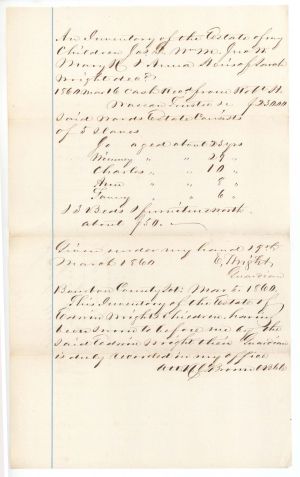 An Inventory of the Estate of my
Children Jas. L. Wm. M. Jno. W.
Mary H. & Anna Heirs of Sarah
Wright decd.
1860 Mar 16 Cash Recd from Robt. H.
Trustee $
Said Wards Estate Consists
of 5 slaves
aged about 25 yrs
Winney " " 29 "
Charles " " 10 "
Ann " " 8 "
Fanny " " 6 "
& 3 Beds & furniture worth
about $50.
Given under my hand 19th
March 1860 E. Wright,
Guardian
County, Mar. 1860.
This Inventory of the Estate of
Edwin Wrights Children having
been sworn to before me by the
said Edwin Wright their Guardian
is duly recorded in my office